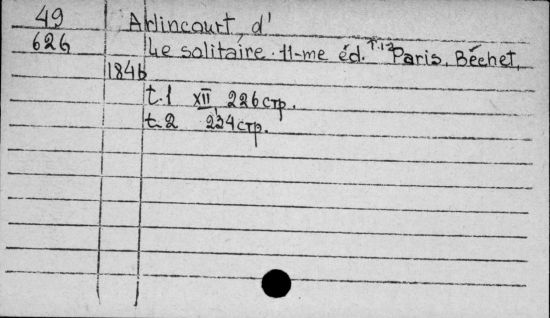 49 Arlincourt, d'
626 Le solitaire. 11-me éd. т.1-2 Paris, Béchet,
1846
t.1 XII, 226 стр.
t.2 234 стр.